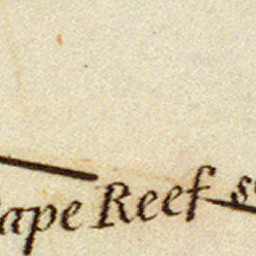 ape Reef s